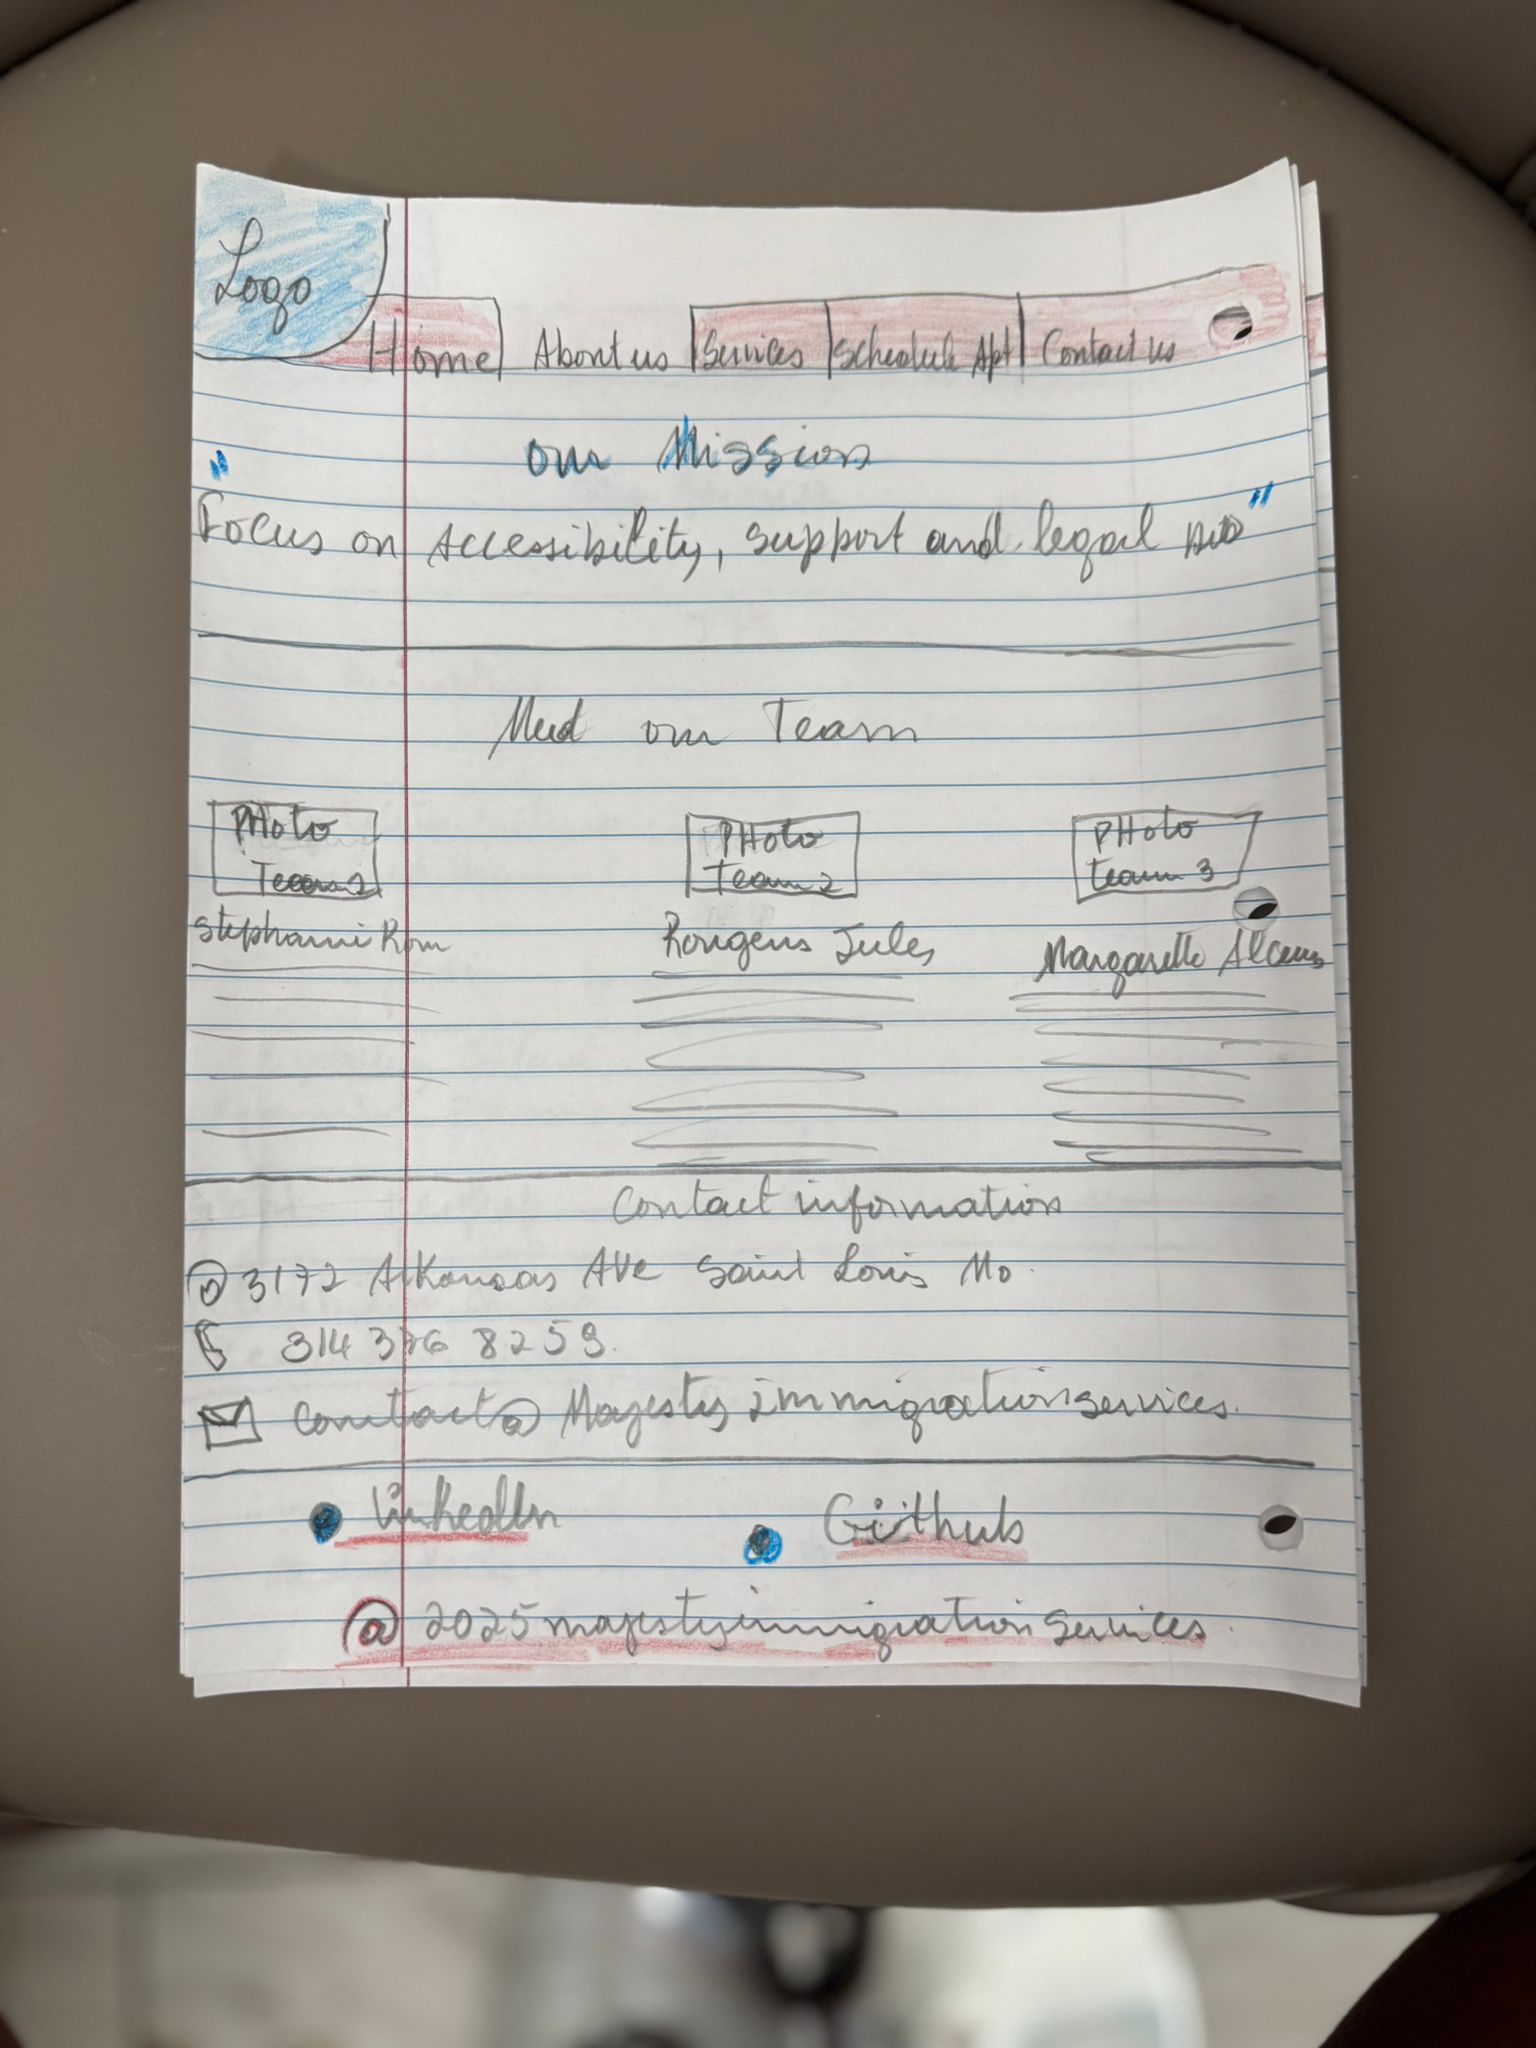 Logo
Home About us Services Schedule Apt Contact us
our Mission
"Focus on Accessibility, support and legal"
our Team
PHoto
PHoto Team 2
PHoto team 3
Rougens Jules
Contact information
3172 Arkansas AVe Saint Louis Mo.
314 376 8259.
contact@Majestyimmigrationservices.
LinkedIn Github
@2025majestyimmigration services.